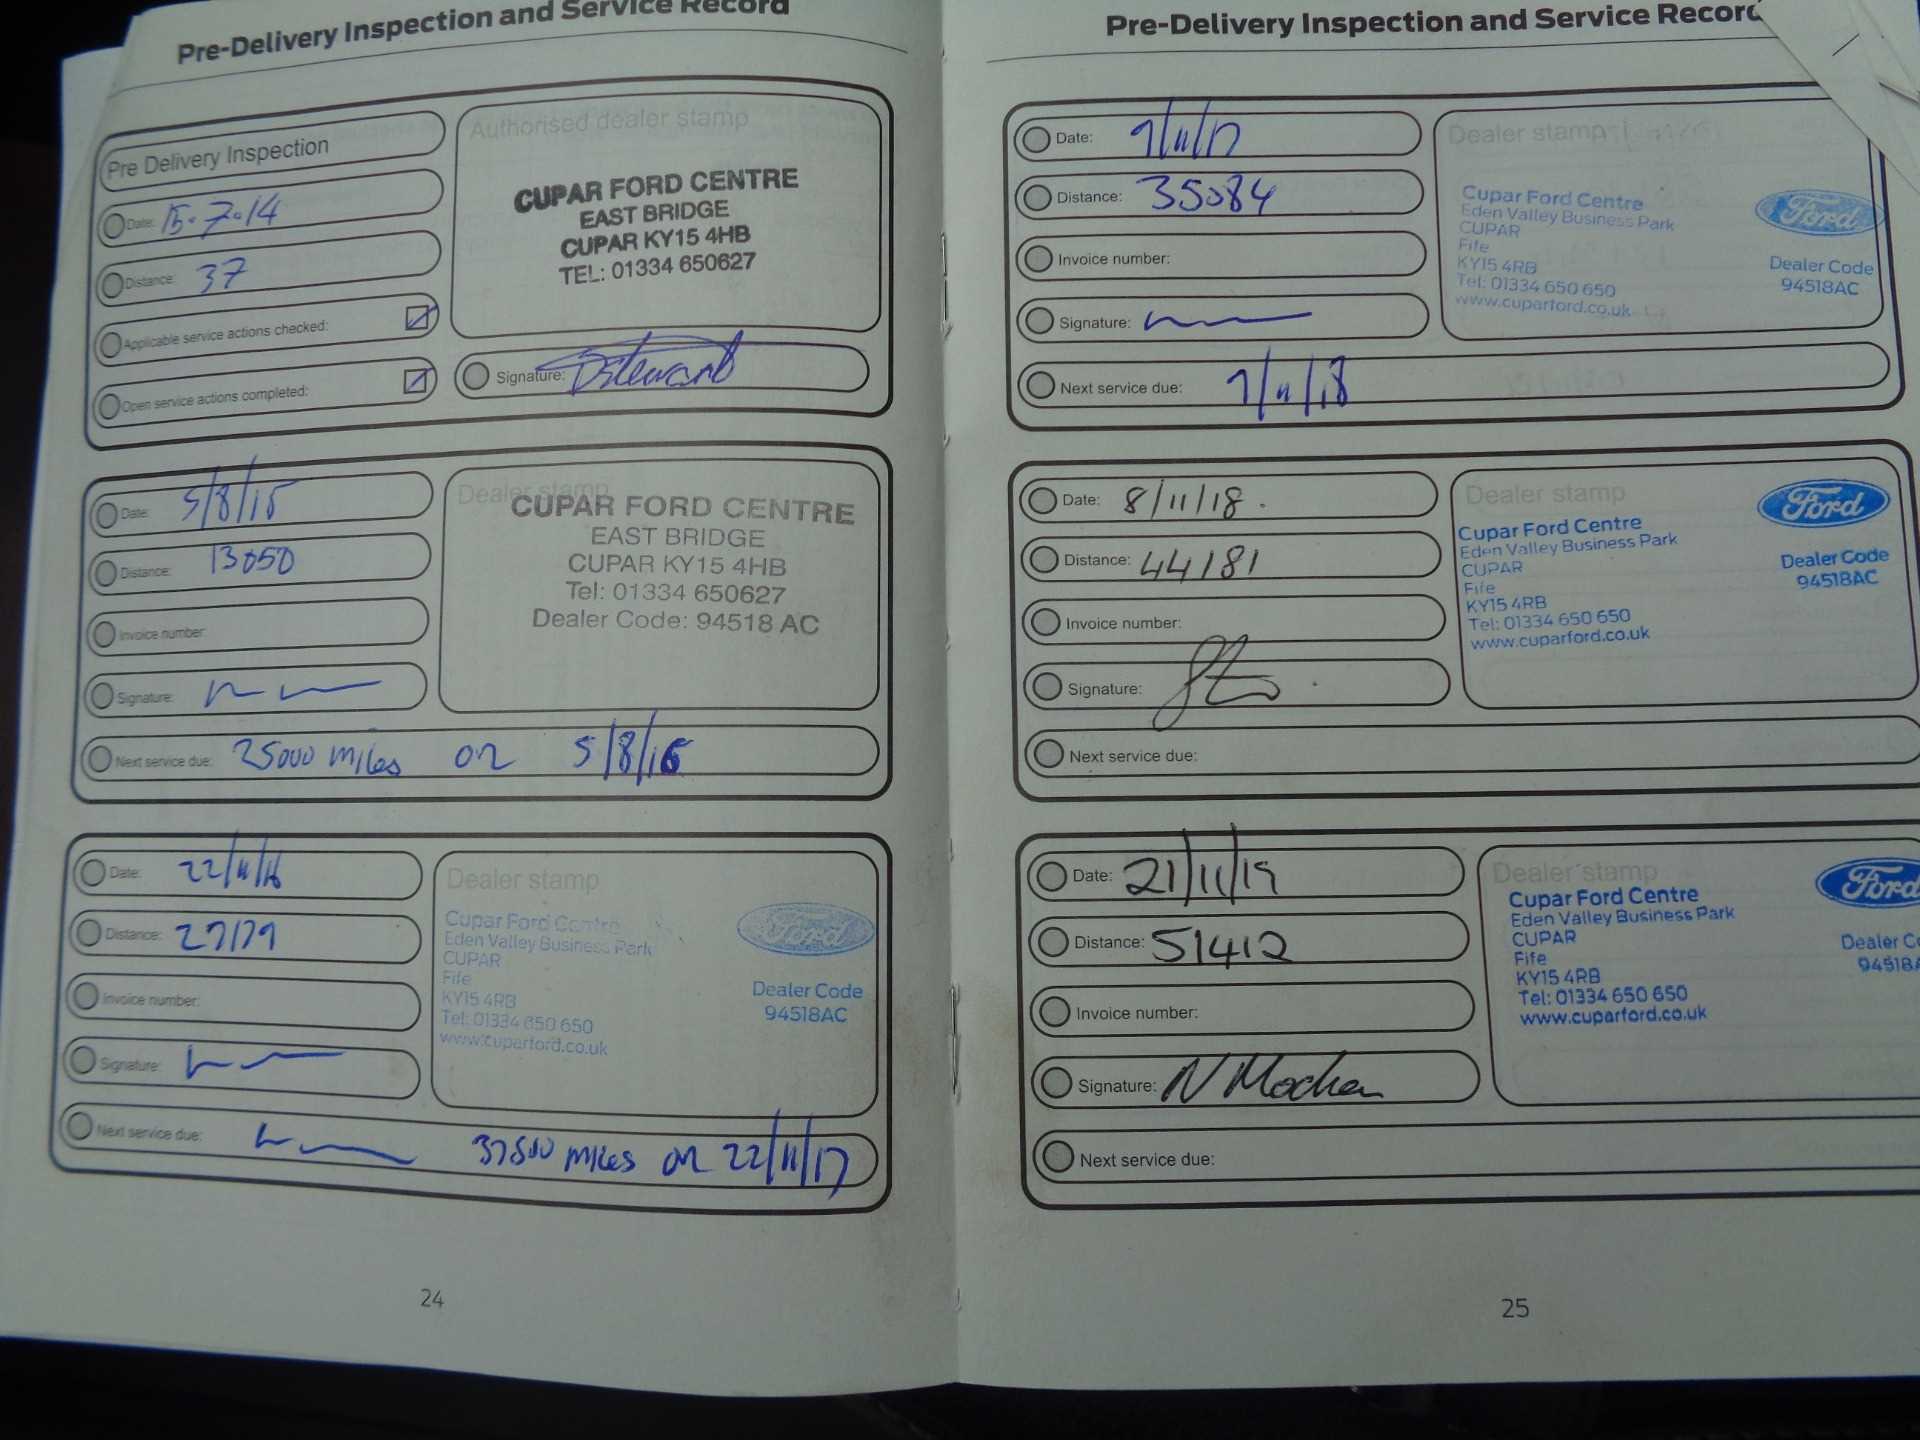 Pre-Delivery Inspection and Service Record
Pre Delivery Inspection
Date: 15.7.14
Distance: 37
Applicable service actions checked:
Open service actions completed:
Authorised dealer stamp
CUPAR FORD CENTRE
EAST BRIDGE
CUPAR KY15 4HB
TEL: 01334 650627
Signature: DStewart
Date: 5/8/15
Distance: 13050
Invoice number:
Signature:
Dealer stamp
CUPAR FORD CENTRE
EAST BRIDGE
CUPAR KY15 4HB
Tel: 01334 650627
Dealer Code: 94518 AC
Next service due: 25000 miles or 5/8/16
Date: 22/11/16
Distance: 27179
Invoice number:
Signature:
Dealer stamp
Cupar Ford Centre
Eden Valley Business Park
CUPAR
Fife
KY15 4RB
Tel: 01334 650 650
www.cuparford.co.uk
Ford
Dealer Code
94518AC
Next service due: 37500 miles or 22/11/17
24
Pre-Delivery Inspection and Service Record
Date: 7/11/17
Distance: 35084
Invoice number:
Signature:
Dealer stamp
Cupar Ford Centre
Eden Valley Business Park
CUPAR
Fife
KY15 4RB
Tel: 01334 650 650
www.cuparford.co.uk
Ford
Dealer Code
94518AC
Next service due: 7/11/18
Date: 8/11/18.
Distance: 44181
Invoice number:
Signature:
Dealer stamp
Cupar Ford Centre
Eden Valley Business Park
CUPAR
Fife
KY15 4RB
Tel: 01334 650 650
www.cuparford.co.uk
Ford
Dealer Code
94518AC
Next service due:
Date: 21/11/19
Distance: 51412
Invoice number:
Signature: N
Dealer stamp
Cupar Ford Centre
Eden Valley Business Park
CUPAR
Fife
KY15 4RB
Tel: 01334 650 650
www.cuparford.co.uk
Ford
Dealer Co
94518A
Next service due:
25